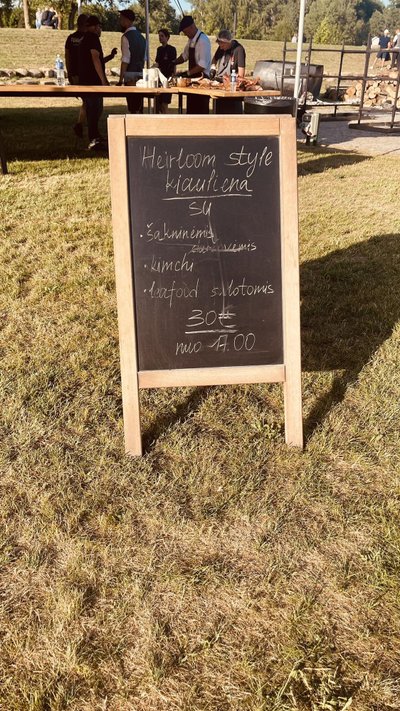 Heirloom style
kiauliena
su
• šakninėmis
daržovėmis
• kimchi
• leafood salotomis
30€
nuo 17.00